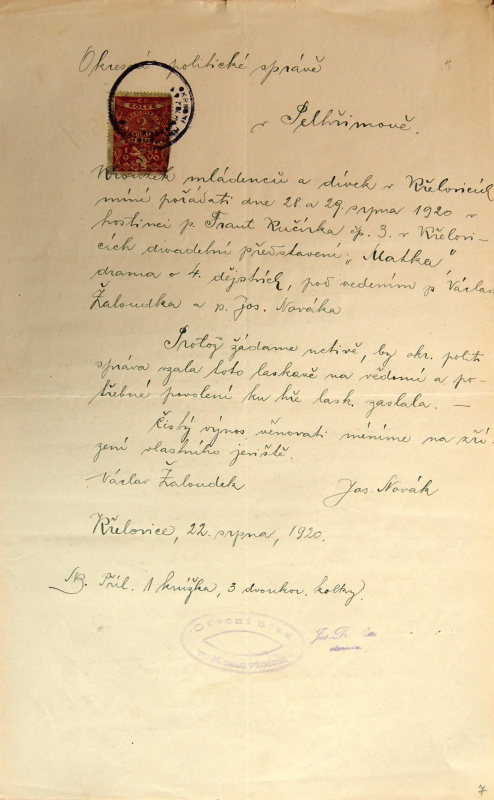 Okresní politické správě
v Pelhřimově.
KOLEK
2
Kroužek mládenců a dívek v Křelovicích
míní pořádati dne 28 a 29 srpna 1920 v
hostinci p. Frant Kučírka čp. 3. v Křelovi-
cích divadelní představení „Matka"
drama o 4. dějstvích, pod vedením p Václav
Žaloudka a p. Jos. Nováka
Protož žádáme uctivě, by okr. politi
správa vzala toto laskavě na vědomí a po-
třebné povolení ku hře lask. zaslala. —
Čistý výnos věnovati míníme na zří
zení vlastního jeviště.
Václav Žaloudek Jos. Novák
Křelovice, 22. srpna, 1920.
NB. Příl. 1 knížka, 3 dvoukor. kolky.
Obecní úřad
v Křelovicích
7